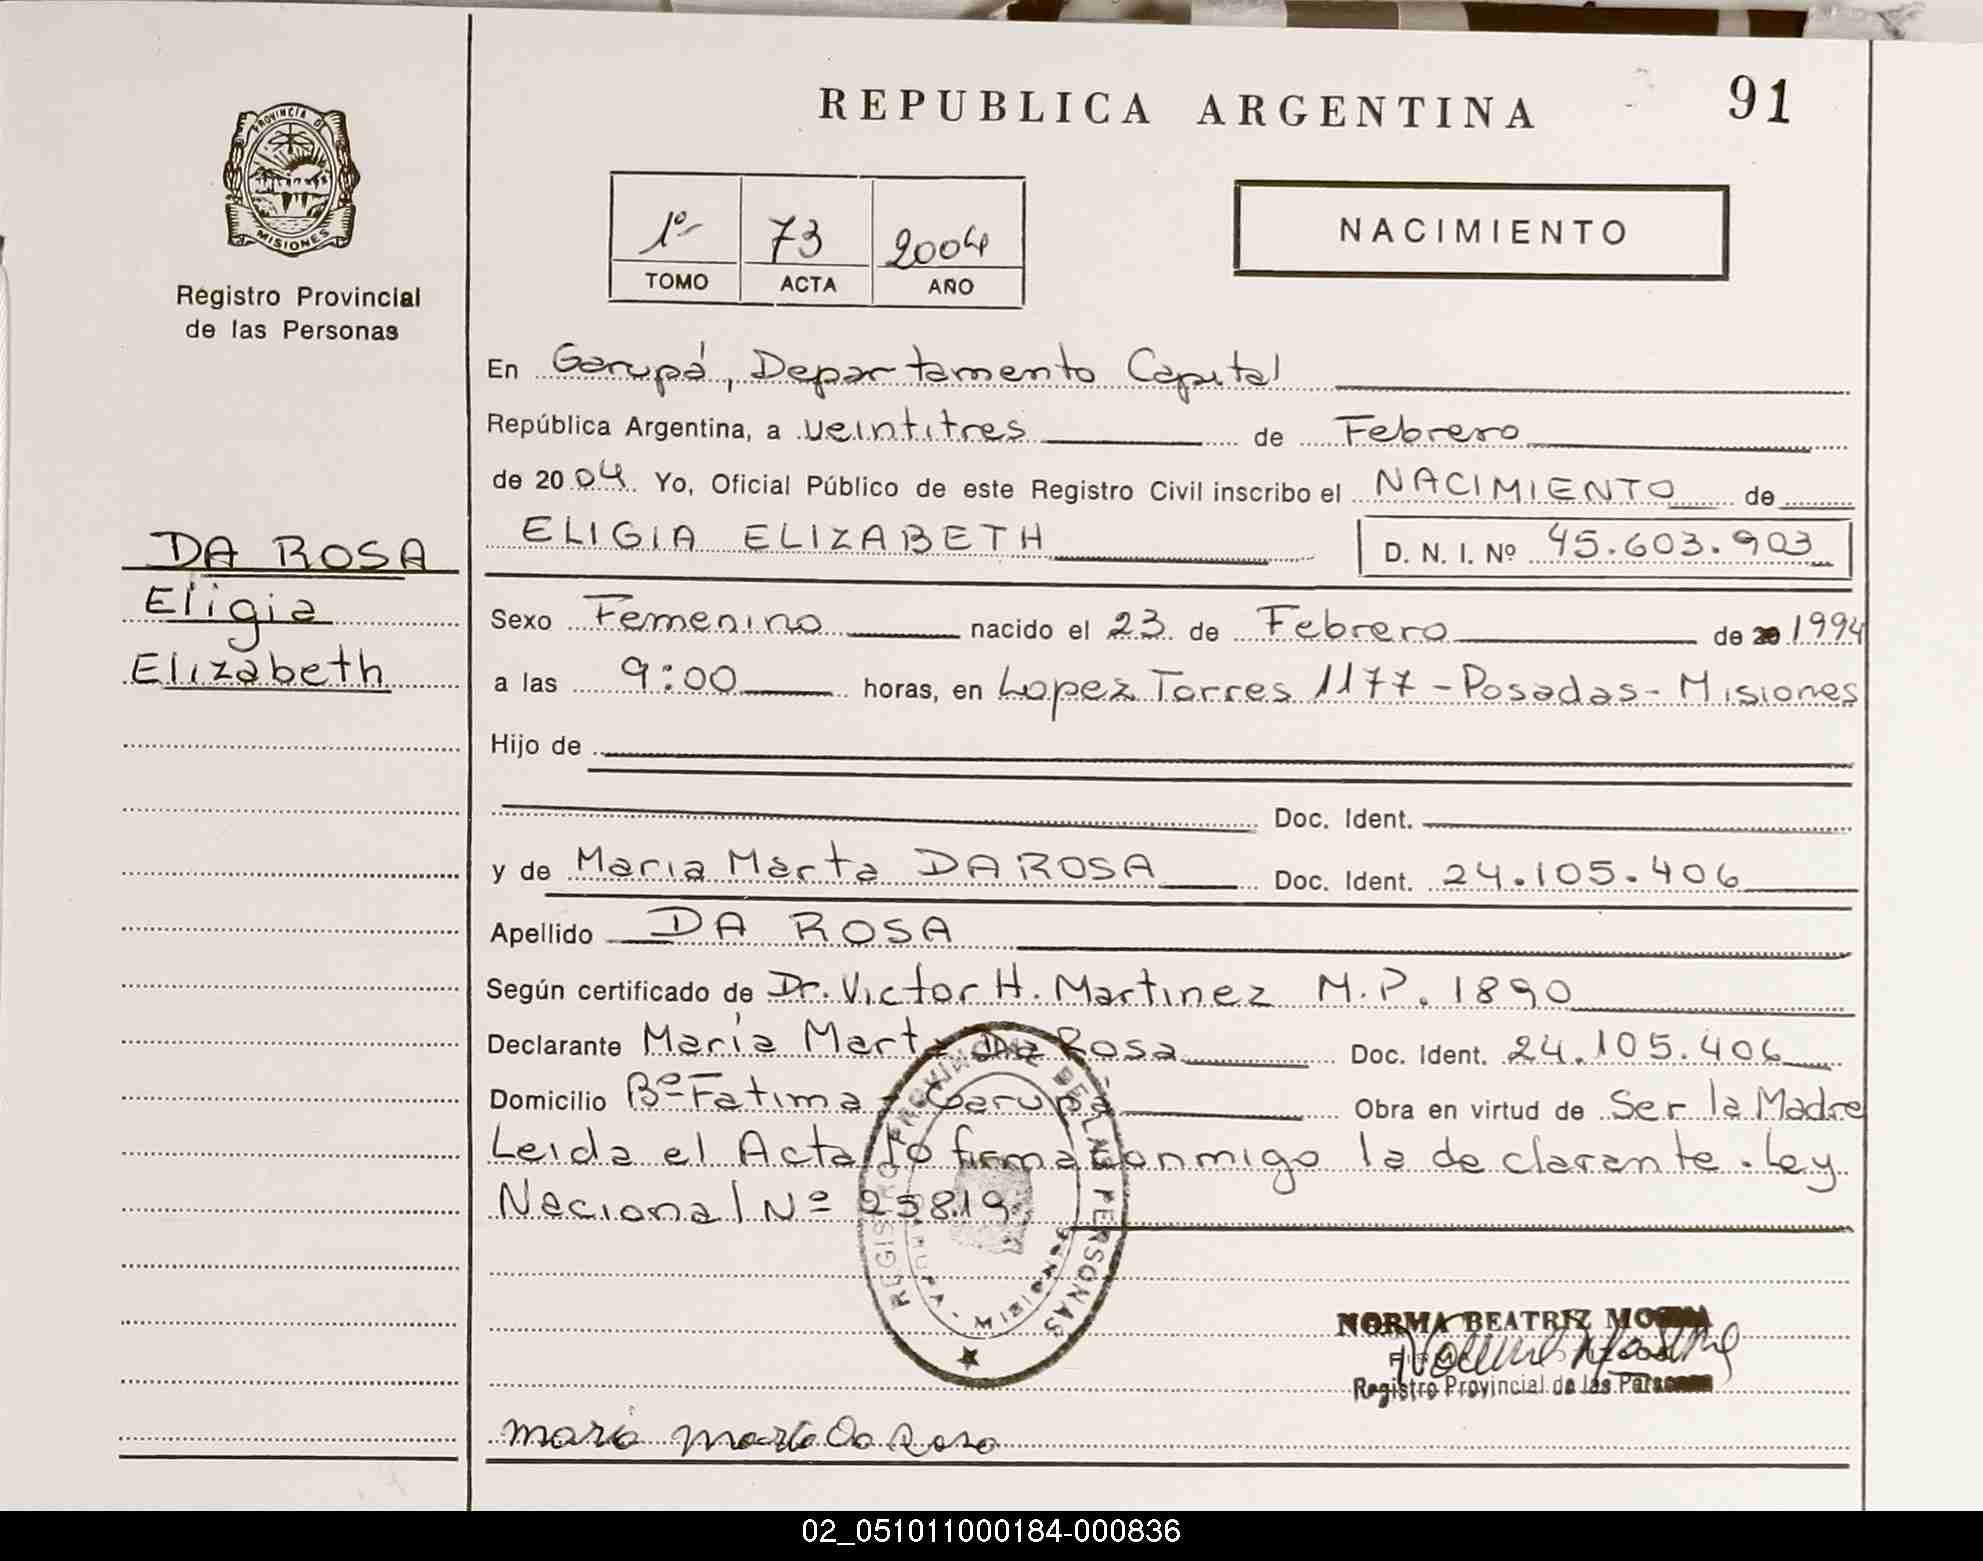 REPUBLICA ARGENTINA
91
PROVINCIA DE
MISIONES
Registro Provincial
de las Personas
1º 73 2004
TOMO ACTA AÑO
NACIMIENTO
En Garupá, Departamento Capital
República Argentina, a veintitres de Febrero
de 2004. Yo, Oficial Público de este Registro Civil inscribo el NACIMIENTO de
ELIGIA ELIZABETH D. N. I. Nº 45.603.903
DA ROSA
Eligia
Elizabeth
Sexo Femenino nacido el 23 de Febrero de 20 1994
a las 9:00 horas, en Lopez Torres 1177 - Posadas - Misiones
Hijo de
Doc. Ident.
y de Maria Marta DA ROSA Doc. Ident. 24.105.406
Apellido DA ROSA
Según certificado de Dr. Victor H. Martinez M.P. 1890
Declarante María Marta Da Rosa Doc. Ident. 24.105.406
Domicilio Bº Fatima - Garupá Obra en virtud de Ser la Madre
Leida el Acta lo firma conmigo la declarante. Ley
Nacional Nº 25.819
REGISTRO PROVINCIAL DE LAS PERSONAS
NORMA BEATRIZ
Registro Provincial de las Personas
Maria Marta Da Rosa
02_051011000184-000836